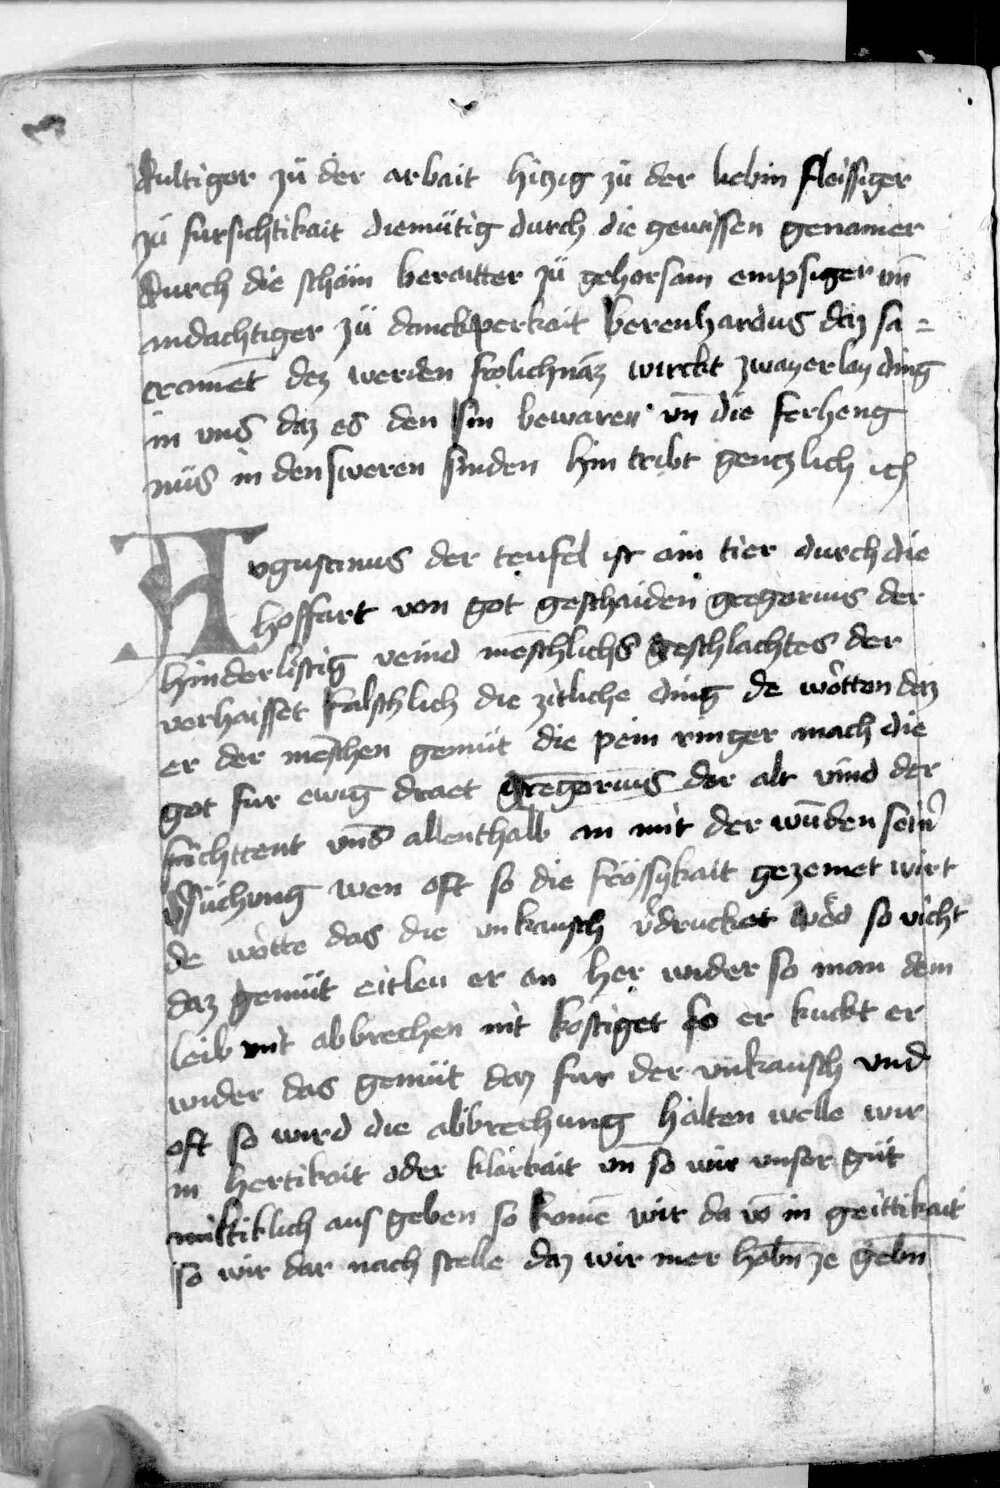 dultiger zü der arbait hiczig zü der liebin fleissiger
zü fursichtikait diemütig durch die gewissen genamer
durch die scham beraitter zü gehorsam empsiger vn̄
andachtiger zü danckperkait Berenhardus daz sa=
cramēt dez werden frolichnāz wirckt zwayerlay ding
in vns daz es den sin bewaren vn̄ die ferheng
nüs in den sweren sinden hin tribt genczlich ich
Avgustinus der teufel ist ain tier durch die
hoffart von got geschaiden gregorius der
hinderlistig veind mēschlichs geschlachtes der
verhaisset falschlich die zitliche ding de wotten daz
er der mēschen gemüt die pein ringer mach die
got fur ewig draet Gregorius der alt vind der
füchttent vns allenthalb an mit der wūden seinr
vsüchung wen oft so die frössykait gezemet wirt
de wotte das die vnkausch vdrucket wed so vicht
daz gemüt eitlen er an her wider so man dem
leib mit abbrechen nit kostiget so er kuckt er
wider das gemüt daz fur der vnkausch vnd
oft so wird die abbrechung halten welle wir
in hertikait oder klarkait vn̄ so wir vnser güt
miltiklich aus geben so komē wir da vō in geittikait
so wir dar nach stelle daz wir mer habn̄ ze gebn̄